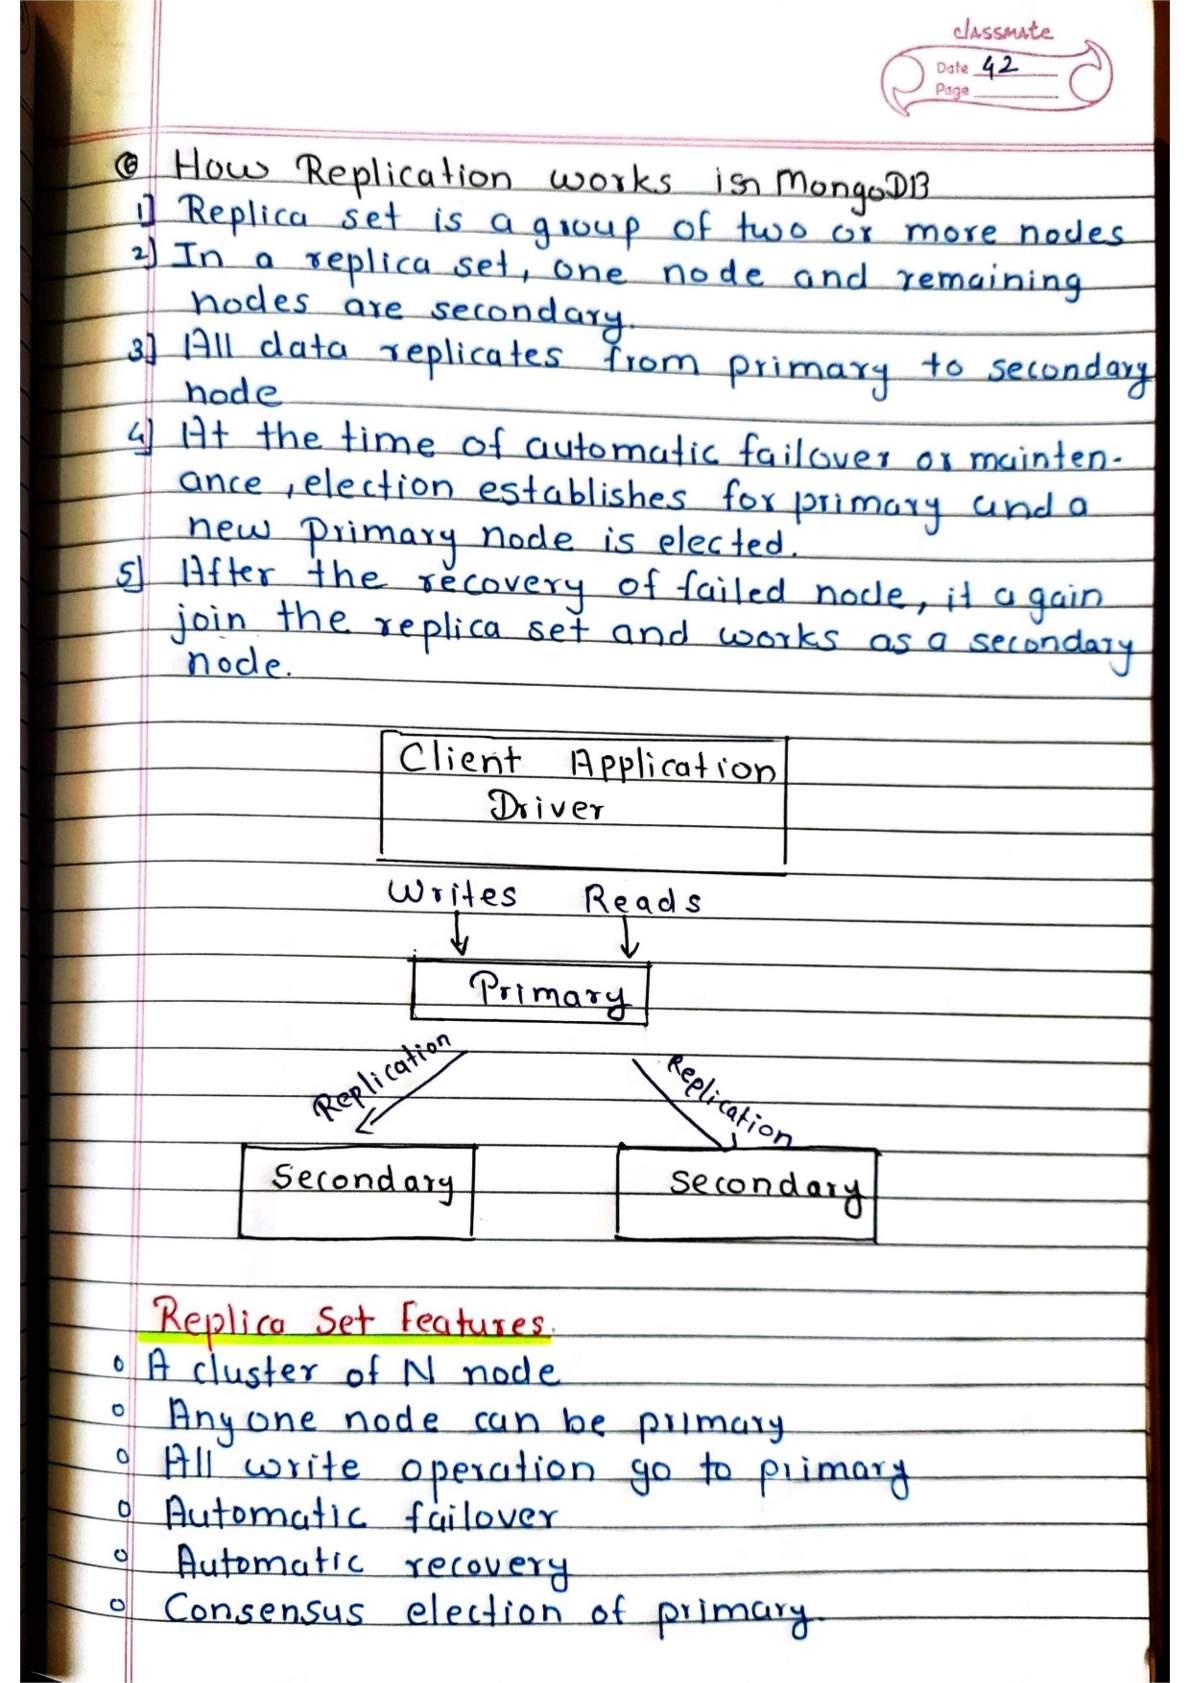 classmate
Date 42
Page
How Replication works in MongoDB
1] Replica set is a group of two or more nodes
2] In a replica set, one node and remaining
nodes are secondary.
3] All data replicates from primary to secondary
node
4] At the time of automatic failover or mainten-
ance, election establishes for primary and a
new primary node is elected.
5] After the recovery of failed node, it again
join the replica set and works as a secondary
node.
Client Application
Driver
Writes Reads
Primary
Replication Replication
Secondary Secondary
Replica Set Features.
o A cluster of N node
o Any one node can be primary
o All write operation go to primary
o Automatic failover
o Automatic recovery
o Consensus election of primary.